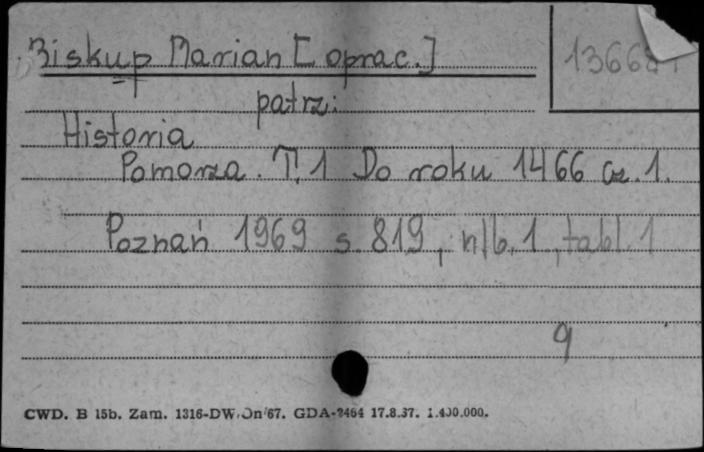 Biskup Marian [oprac.]
patrz:
Historia
Pomorza. T. 1 Do roku 1466 cz. 1.
Poznań 1969 s. 819, nlb. 1, tabl. 1
9
CWD. B 15b. Zam. 1316-DW/On/67. GDA-2464 17.8.67. 1.400.000.